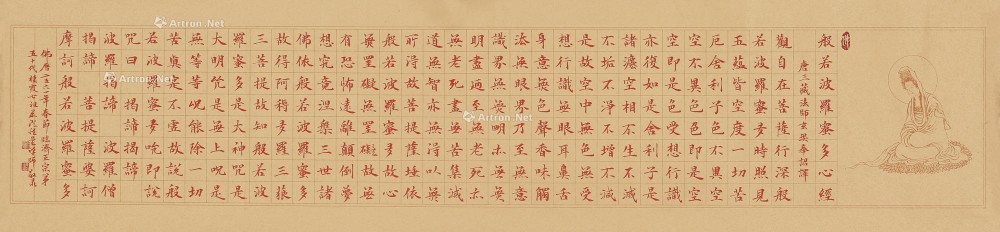 般若波羅蜜多心經
唐三藏法師玄奘奉詔譯
觀自在菩薩行深般
若波羅蜜多時照見
五蘊皆空度一切苦
厄舍利子色不異空
空不異色色即是空
空即是色受想行識
亦復如是舍利子是
諸法空相不生不滅
不垢不淨不增不減
是故空中無色無受
想行識無眼耳鼻舌
身意無色聲香味觸
法無眼界乃至無意
識界無無明亦無無
明盡乃至無老死亦
無老死盡無苦集滅
道無智亦無得以無
所得故菩提薩埵依
般若波羅蜜多故心
無罣礙無罣礙故無
有恐怖遠離顛倒夢
想究竟涅槃三世諸
佛依般若波羅蜜多
故得阿耨多羅三藐
三菩提故知般若波
羅蜜多是大神呪是
大明呪是無上呪是
無等等呪能除一切
苦真實不虛故說般
若波羅蜜多呪即說
呪曰 揭諦 揭諦
波羅揭諦 波羅僧
揭諦 菩提薩婆訶
摩訶般若波羅蜜多
佛曆二五六二年春節臨濟正宗第
五十代
Artron.Net
Artron.Net
Artron.Net
Artron.Net